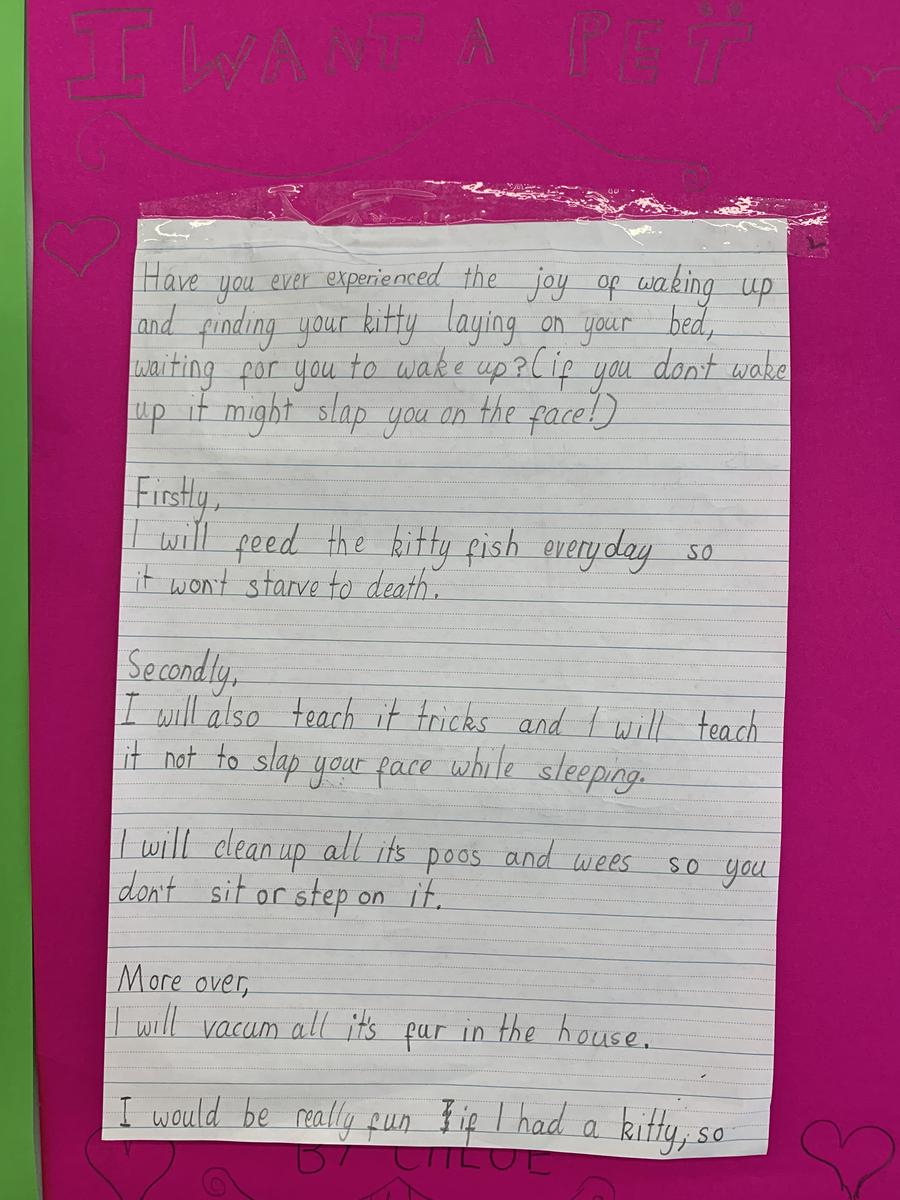 I WANT A PET
Have you ever experienced the joy of waking up
and finding your kitty laying on your bed,
waiting for you to wake up?(if you don't wake
up it might slap you on the face!)
Firstly,
I will feed the kitty fish everyday so
it won't starve to death.
Secondly,
I will also teach it tricks and I will teach
it not to slap your face while sleeping.
I will clean up all it's poos and wees so you
don't sit or step on it.
More over,
I will vacum all it's fur in the house.
I would be really fun if I had a kitty, so
BY CHLOE